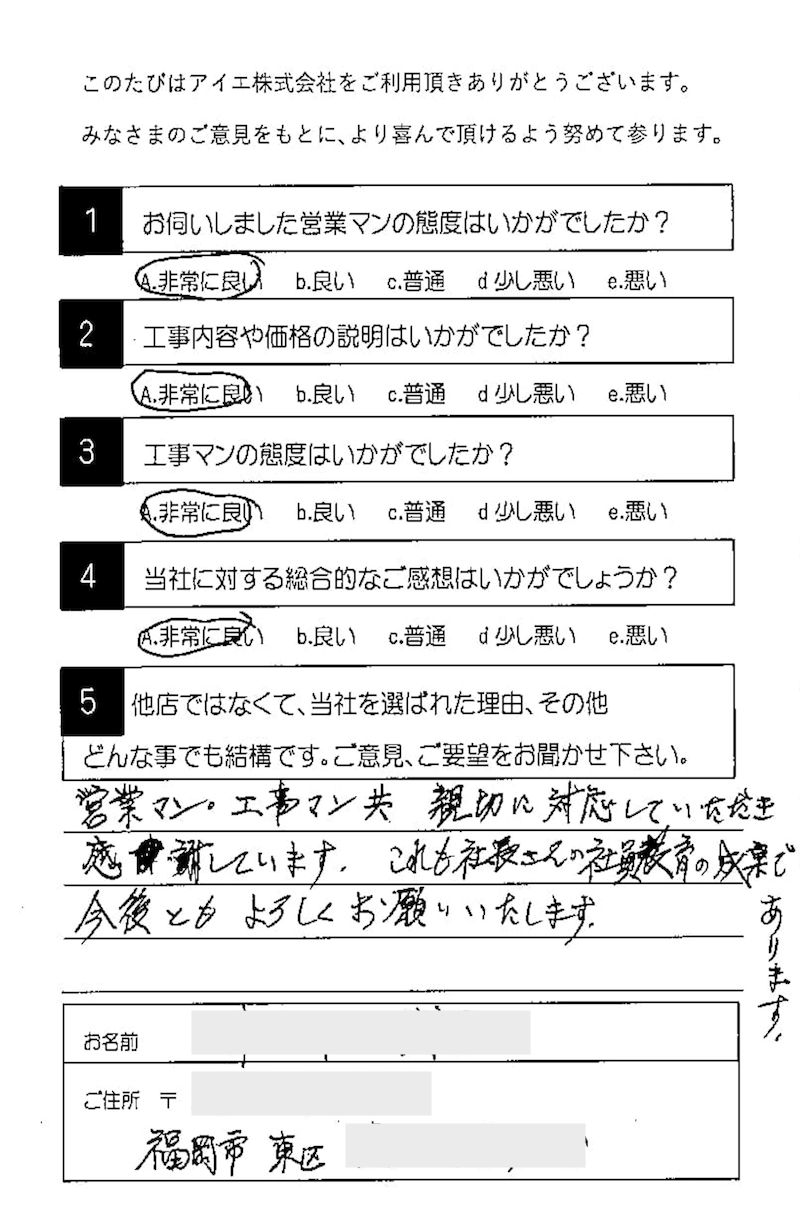 このたびはアイエ株式会社をご利用頂きありがとうございます。
みなさまのご意見をもとに、より喜んで頂けるよう努めて参ります。
1 お伺いしました営業マンの態度はいかがでしたか？
A.非常に良い b.良い c.普通 d少し悪い e.悪い
2 工事内容や価格の説明はいかがでしたか？
A.非常に良い b.良い c.普通 d少し悪い e.悪い
3 工事マンの態度はいかがでしたか？
A.非常に良い b.良い c.普通 d少し悪い e.悪い
4 当社に対する総合的なご感想はいかがでしょうか？
A.非常に良い b.良い c.普通 d少し悪い e.悪い
5 他店ではなくて、当社を選ばれた理由、その他
どんな事でも結構です。ご意見、ご要望をお聞かせ下さい。
営業マン。工事マン共 親切に対応していただき
感謝しています。これも社長さんの社員教育の成果で
あります。
今後とも よろしくお願いいたします。
お名前
ご住所 〒
福岡市 東区